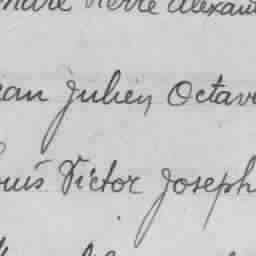 Pierre Alexan
ean Julien Octav
ouis Victor Joseph